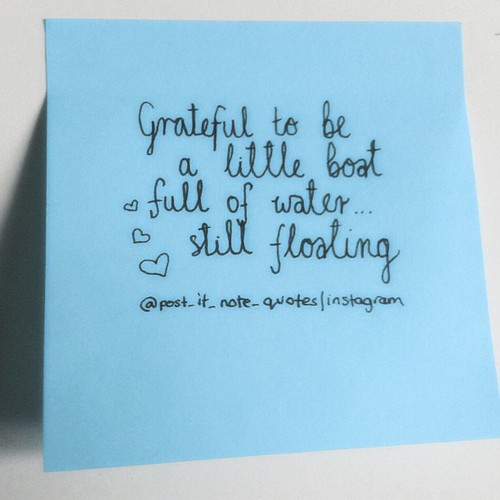 Grateful to be
a little boat
full of water...
still floating
@post_it_note_quotes/instagram